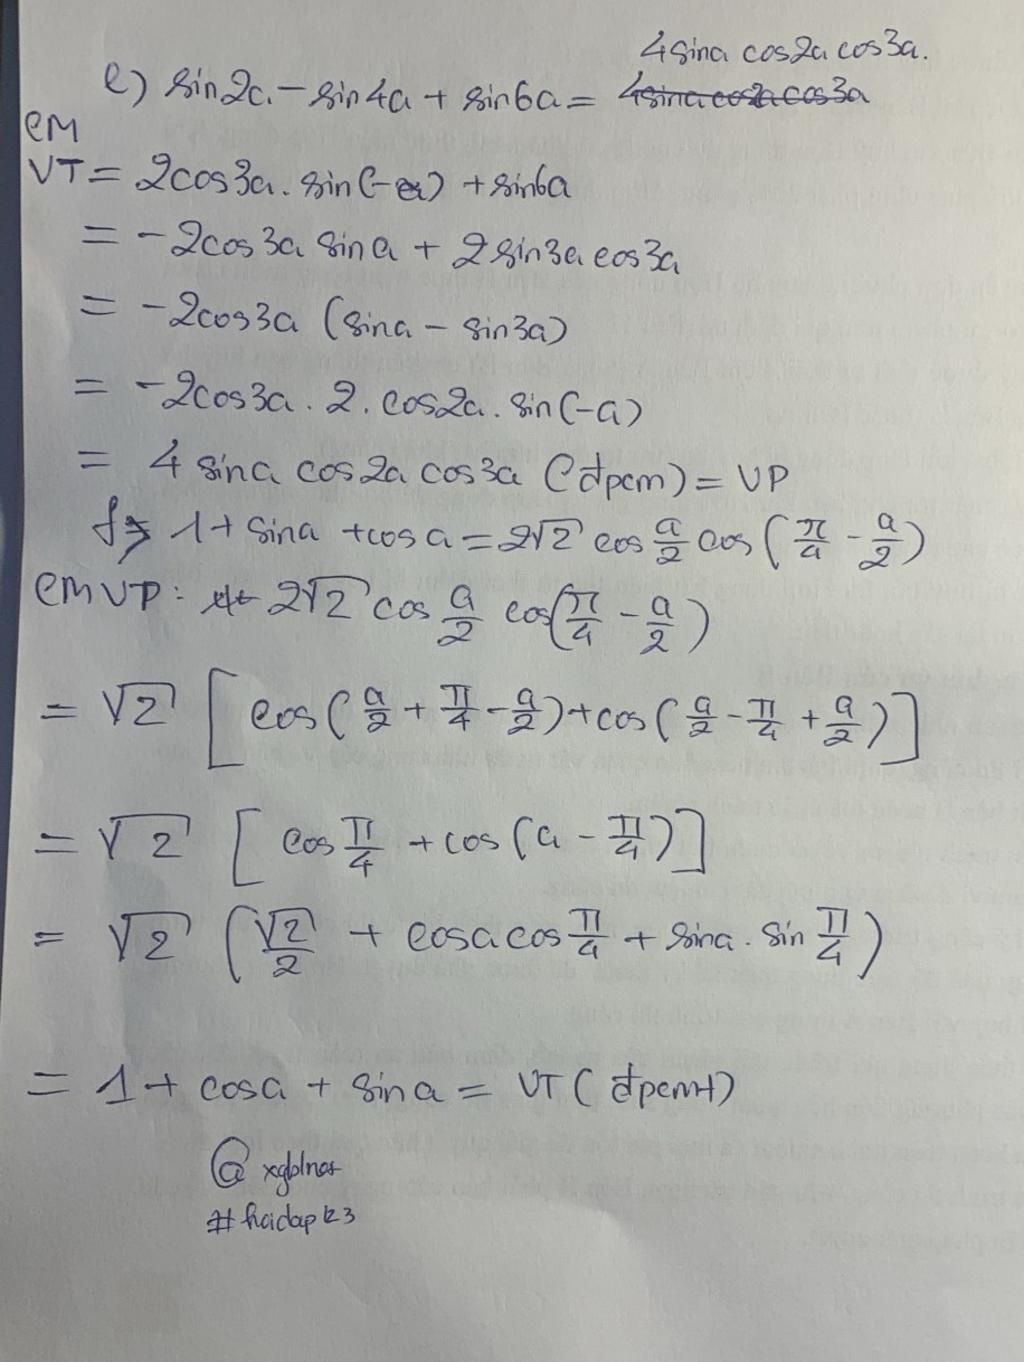 4sina cos2a cos3a.
e) sin2a - sin4a + sin6a = 4sina cos2a cos3a
CM
VT = 2cos3a. sin(-a) + sin6a
= -2cos3a sina + 2sin3a cos3a
= -2cos3a (sina - sin3a)
= -2cos3a . 2. cos2a. sin(-a)
= 4 sina cos2a cos3a (đpcm) = VP
f) 1 + sina + cosa = 2√2 cos a/2 cos(π/4 - a/2)
CM VP: 2√2 cos a/2 cos(π/4 - a/2)
= √2 [cos(a/2 + π/4 - a/2) + cos(a/2 - π/4 + a/2)]
= √2 [cos π/4 + cos(a - π/4)]
= √2 (√2/2 + cosa cos π/4 + sina. sin π/4)
= 1 + cosa + sina = VT (đpcm)
@xgblnas
#hoidap123